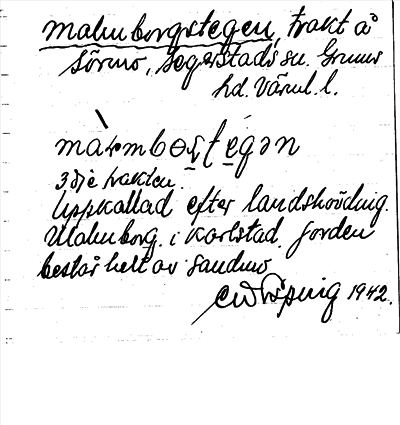 Malmborgstegen, trakt å
Sörmo, Segerstads sn. Grums
hd. Värml. l.
màrmbo̱rstegən
3dje trakten.
Uppkallad efter landshövding
Malmborg i Karlstad. Jorden
består helt av sandmo
1942.